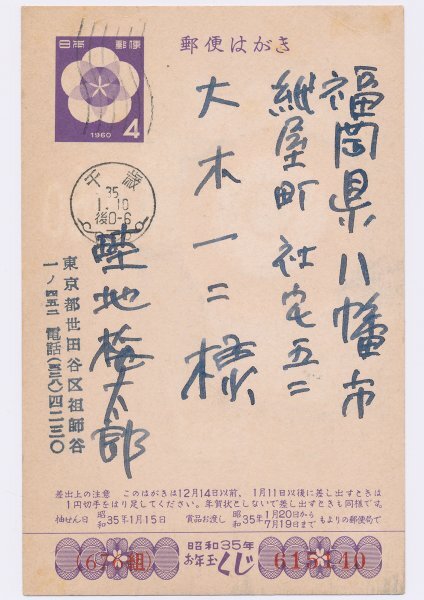 日本郵便
1960
4
郵便はがき
千歳
35
1.10
後0-6
福岡県八幡市
紙屋町社宅五二
大木一二様
畦地梅太郎
東京都世田谷区祖師谷
一ノ四五二 電話(三八)四二三〇
差出上の注意 このはがきは12月14日以前、1月11日以後に差し出すときは
1円切手をはり足してください。年賀状としないで差し出すときも同様です。
抽せん日 昭和35年1月15日 賞品お渡し 昭和35年 1月20日から 7月19日まで もよりの郵便局で
昭和35年
お年玉くじ
(67組
615140